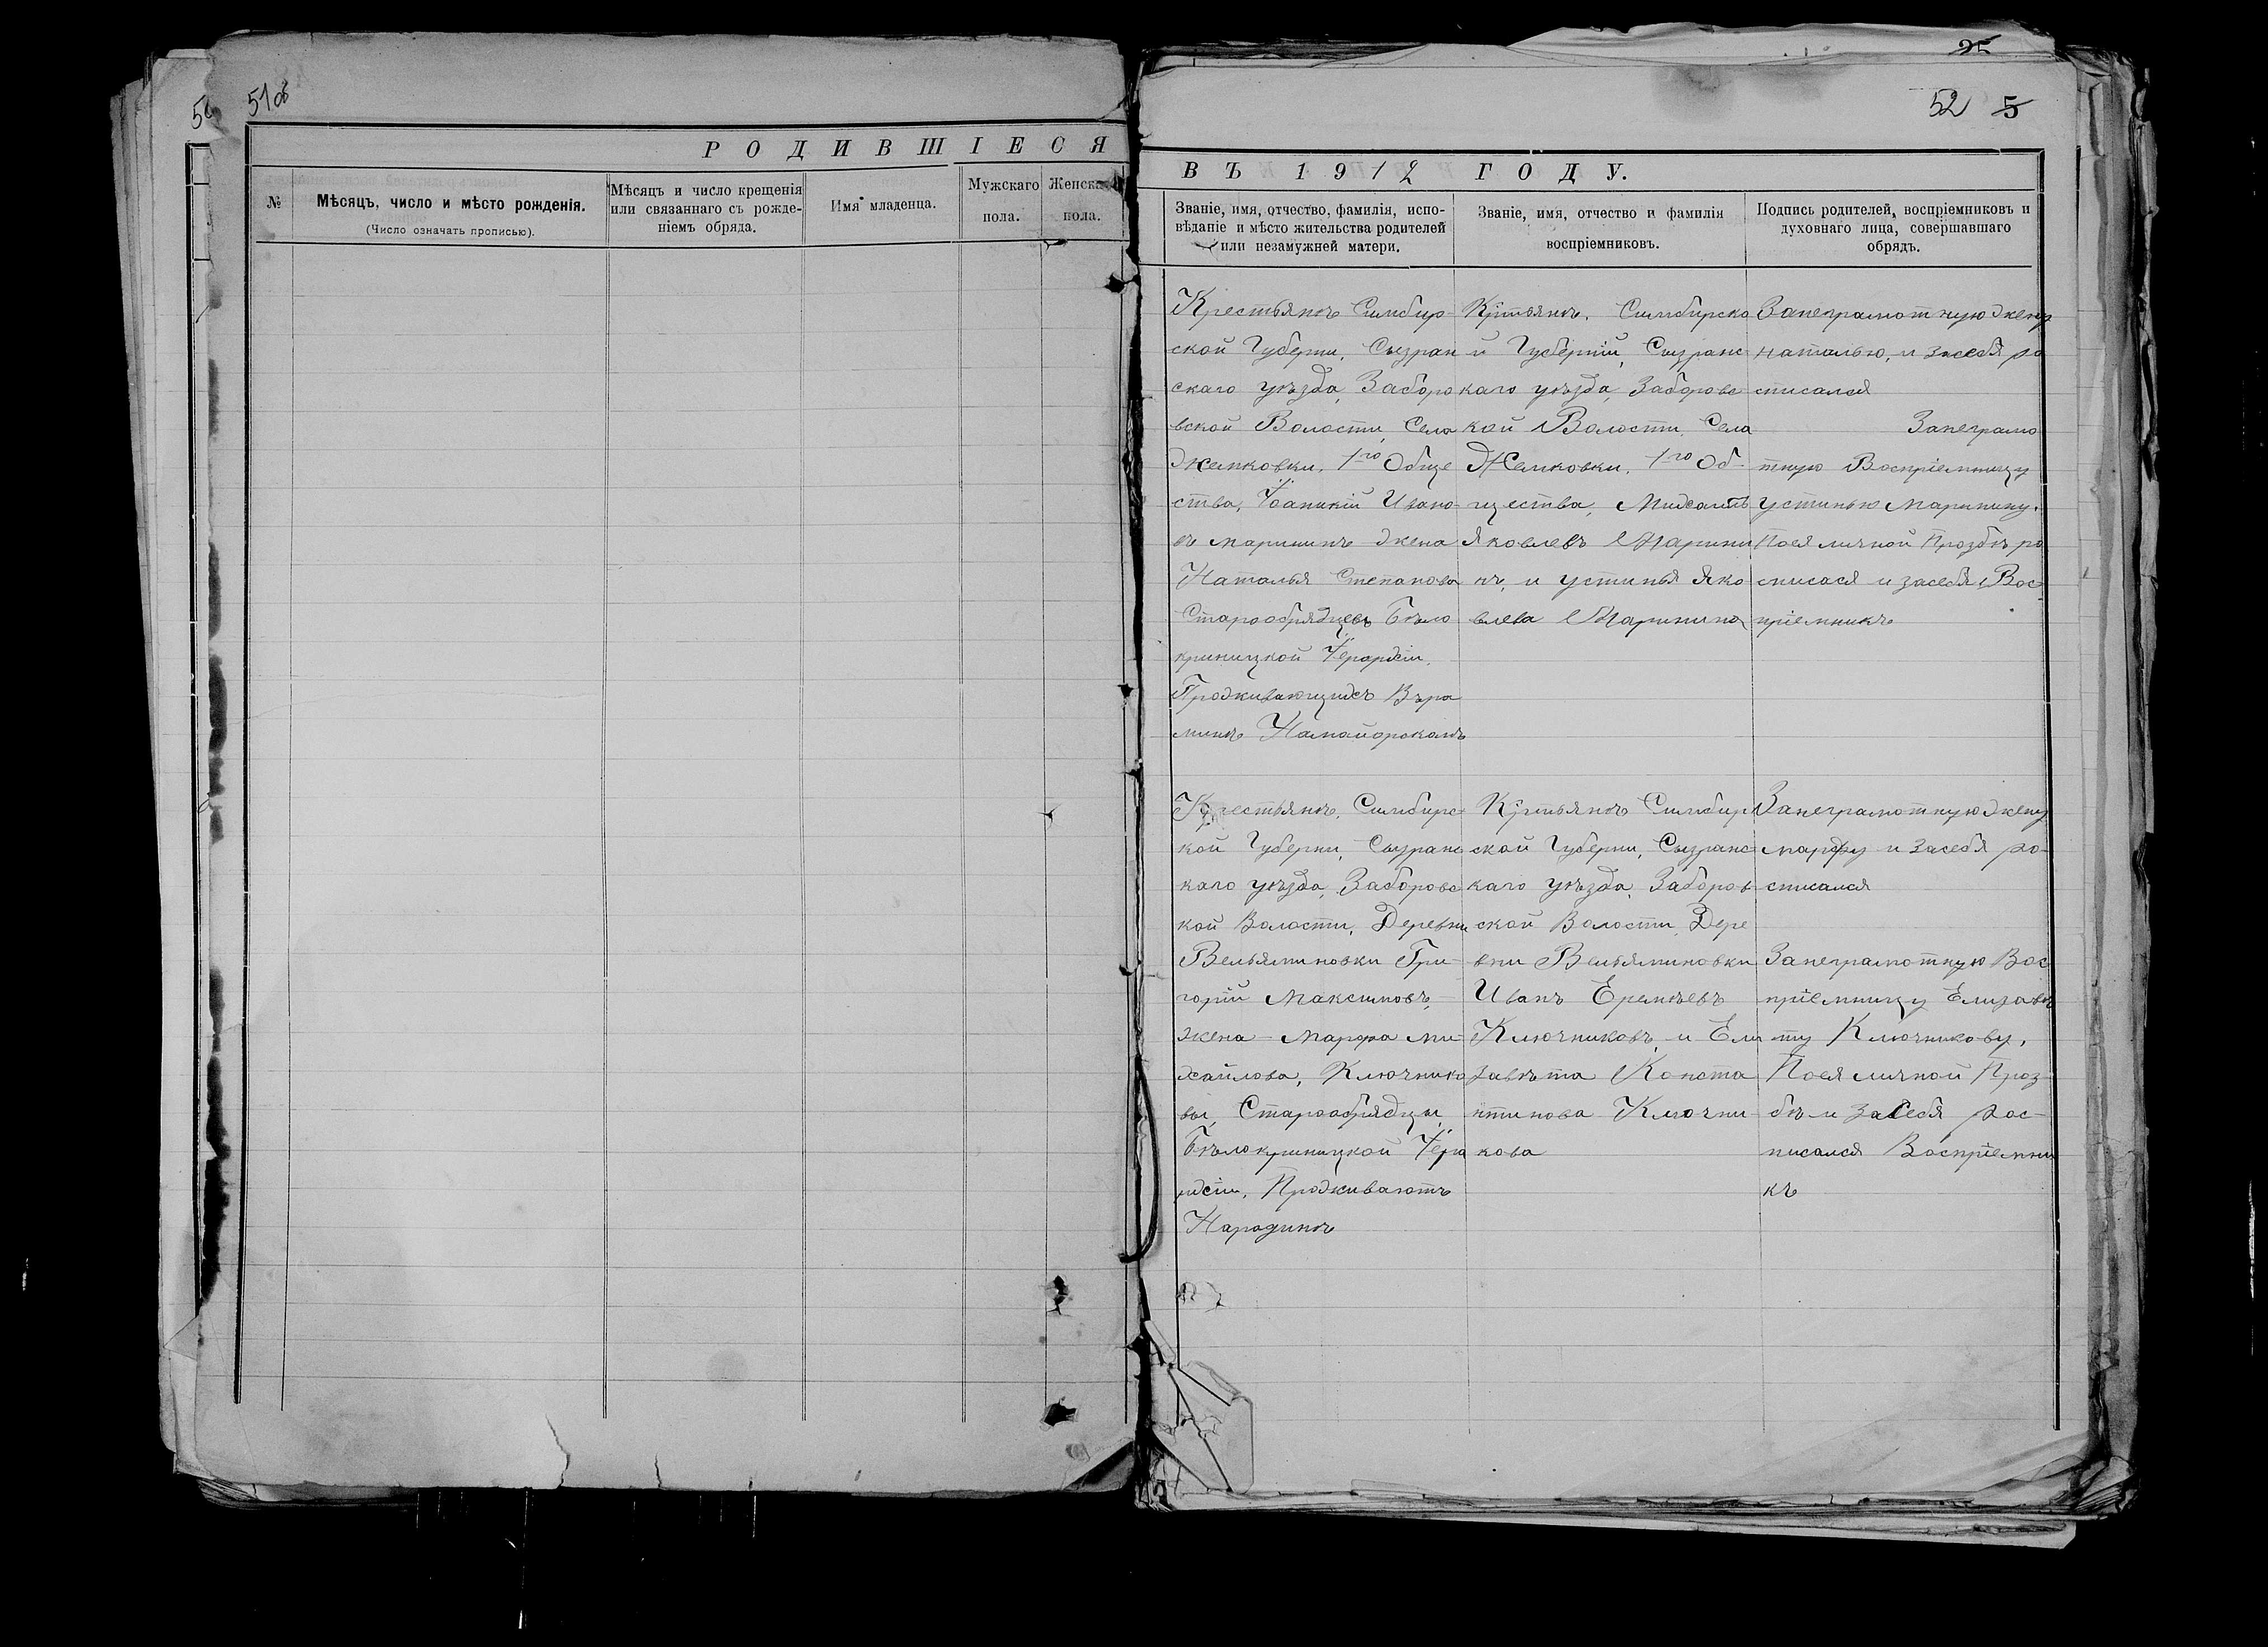 51об
РОДИВШІЕСЯ
№
Мѣсяцъ, число и мѣсто рожденія.
(Число означать прописью).
Мѣсяцъ и число крещенія
или связаннаго съ рожде-
ніемъ обряда.
Имя младенца.
Мужскаго
пола.
Женска
пола.
25
52 5
ВЪ 1912 ГОДУ.
Званіе, имя, отчество, фамилія, испо-
вѣданіе и мѣсто жительства родителей
или незамужней матери.
Званіе, имя, отчество и фамилія
воспріемниковъ.
Подпись родителей, воспріемниковъ и
духовнаго лица, совершавшаго
обрядъ.
Крестьянъ Симбир-
ской Губерни, Сызран
скаго уѣзда, Заборо
вской Волости, Села
Жемковки, 1го Обще
ства, Іоаникій Ивано-
въ Маринин жена
Наталья Степанова
Старообрядцевъ Бѣло
криницкой Іерархіи,
Проживающихъ
Крітьянъ, Симбирско
й Губерніи, Сызранс
каго уѣзда, Заборовс
кой Волости, Села
Жемковки, 1го Об-
щества,
Яковлевъ Марини
нъ, и Устинья Яко
влева Маринина
Занеграмотную жену
Наталью, и засебя ра
списался
Занеграмо
тную Воспріемницу
Устинью Маринину.
Поея личной Прозбѣ ра
списася и засебя Вос
пріемникъ
Крестьянъ, Симбирс
кой Губерни, Сызранс
каго уѣзда, Заборовс
кой Волости, Деревни
Вельяминовки Гри-
горій Максимовъ,
жена Марфа Ми-
хайлова, Ключнико
вы, Старообрядцы
Бѣлокриницкой Іера
рхіи, Проживаютъ
Крітьянъ Симбир
ской Губерни, Сызранс-
каго уѣзда, Заборов
ской Волости, Дере
вни Вельяминовки
Иванъ Еремѣевъ
Ключниковъ, и Ели
завѣта Конста
нтинова Ключни
кова
Занеграмотную жену
Марфу и засебя ра-
списался
Занеграмотную Вос
пріемницу Елизавѣ
ту Ключникову,
Поея личной Проз
бѣ и засебя рос-
писался Воспріемни
къ